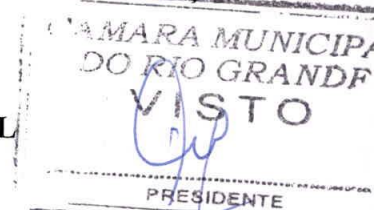 CÂMARA MUNICIPA
DO RIO GRANDE
VISTO
L
PRESIDENTE